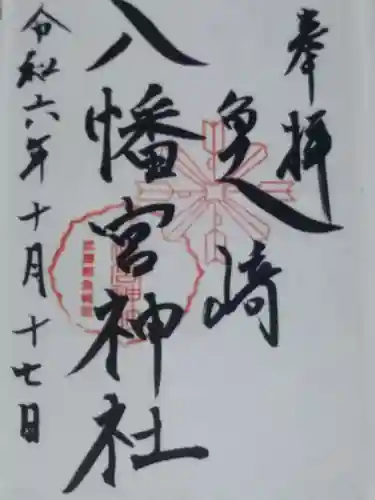 奉拝
亀崎
八幡宮神社
令和六年十月十七日